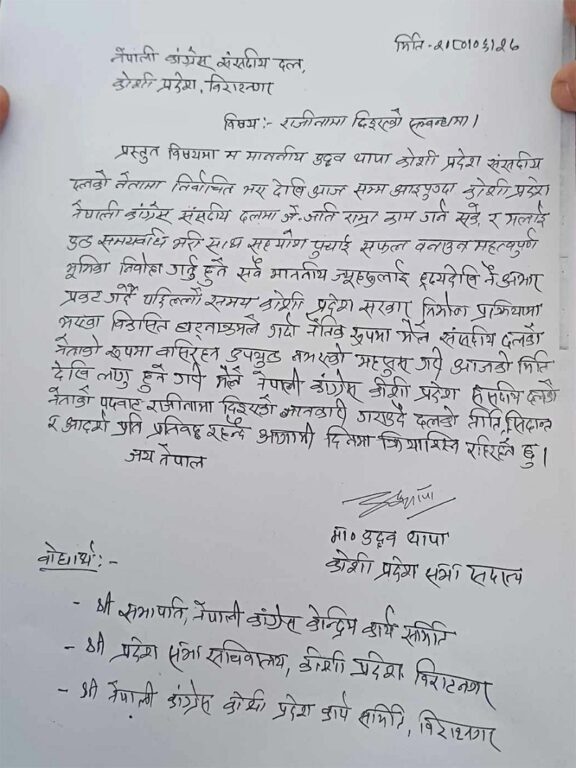 मिति - २०८०।०६।२७
नेपाली कांग्रेस संसदीय दल,
कोशी प्रदेश, विराटनगर
विषय :- राजीनामा दिइएको सम्बन्धमा।
प्रस्तुत विषयमा म माननीय उद्धव थापा कोशी प्रदेश संसदीय
दलको नेतामा निर्वाचित भए देखि आज सम्म आइपुग्दा कोशी प्रदेश
नेपाली कांग्रेस संसदीय दलमा जे-जति राम्रा काम गर्न सके, र मलाई
हुने सर्वै माननीय ज्यूहरुलाई हृदयदेखि नै आभार
प्रकट गर्दै पछिल्लो समय कोशी प्रदेश सरकार निर्माण प्रक्रियामा
भएका विकसित घटनाक्रमले गर्दा नैतिक रुपमा मैले संसदीय दलको
नेताको रुपमा बसिरहन उपयुक्त नभएको महसुस गरी आजको मिति
देखि लागु हुने गरी मैले नेपाली कांग्रेस कोशी प्रदेश संसदीय दलको
नेताको पदबाट राजीनामा दिइएको जानकारी गराउदै दलको निति, सिद्दान्त
र आदर्श प्रति प्रतिवद्द रहन्दै आगामी दिनमा क्रियाशिल रहिरहने छु।
जय नेपाल
मा० उद्धव थापा
कोशी प्रदेश सभा सदस्य
वोधार्थ :-
- श्री सभापति, नेपाली कांग्रेस केन्द्रिय कार्य समिति
- श्री प्रदेश सभा सचिवालय, कोशी प्रदेश, विराटनगर
- श्री नेपाली कांग्रेस कोशी प्रदेश कार्य समिति, विराटनगर